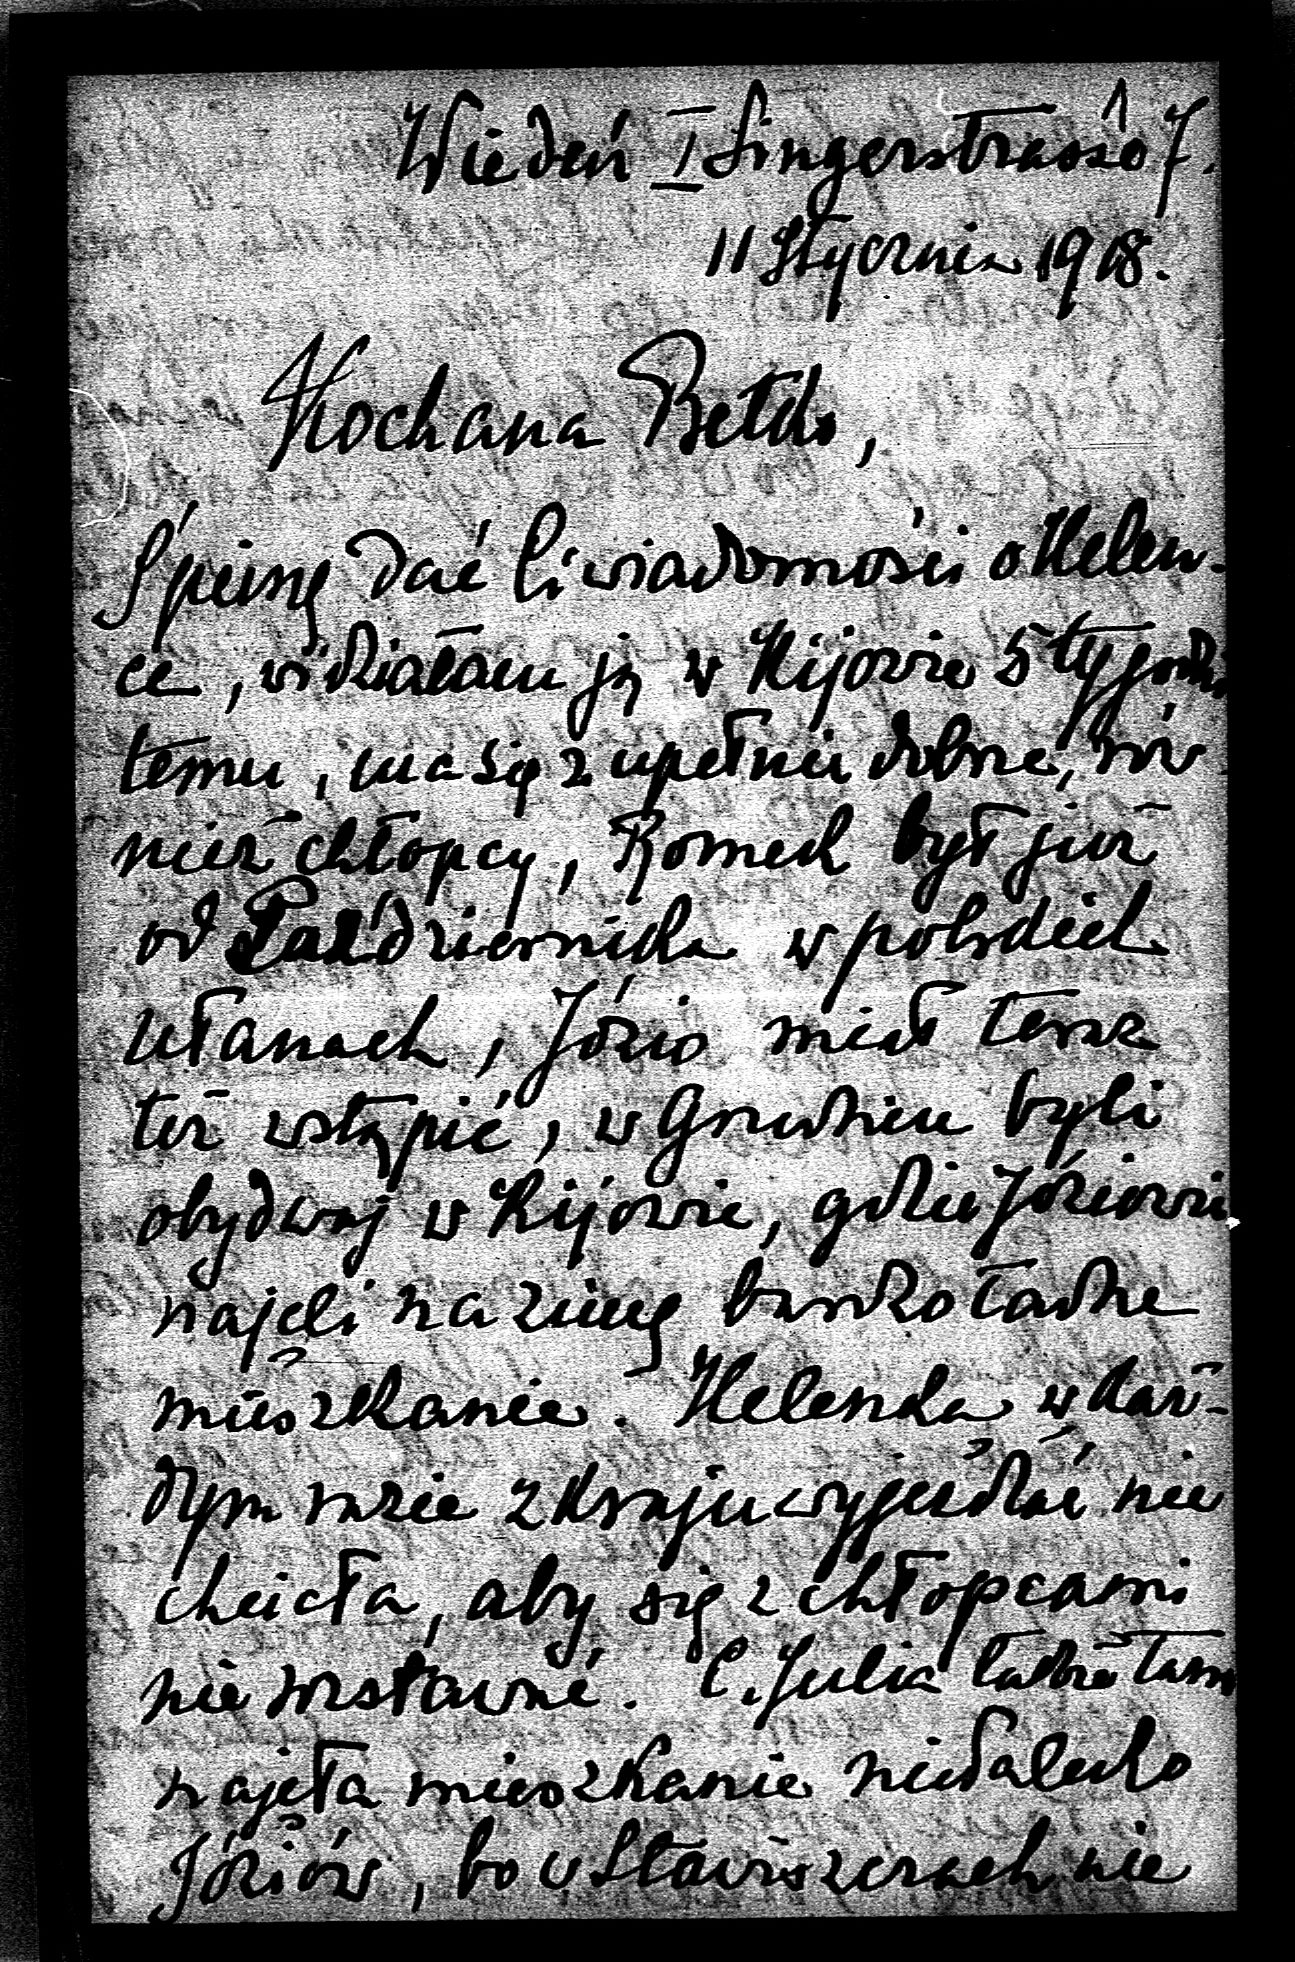 Wiedeń I Singerstrasse 7.
11 Stycznia 1918.
Kochana Betko,
Śpieszę dać Ci wiadomości o Helen-
ce, widziałam ją w Kijowie 5 tygodni
temu, ma się zupełnie dobrze, rów
nież chłopcy, Romek był już
od Października w polskich
ułanach, Józio miał teraz
też wstąpić, w Grudniu byli
obydwaj w Kijowie, gdzie Józiowie
najęli na zimę bardzo ładne
mieszkanie. Helenka w każ-
dym razie z kraju wyjeżdżać nie
chciała, aby się z chłopcami
nie rozstawać. C. Julia także tam
najęła mieszkanie niedaleko
Józiów, bo w Stawiszczach nie